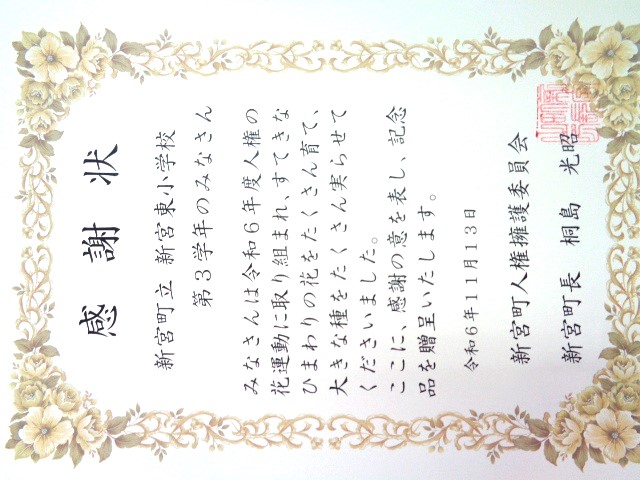 感謝状
新宮町立 新宮東小学校
第３学年のみなさん
みなさんは令和６年度人権の
花運動に取り組まれ、すてきな
ひまわりの花をたくさん育て、
大きな種をたくさん実らせて
くださいました。
ここに、感謝の意を表し、記念
品を贈呈いたします。
令和６年１１月１３日
新宮町人権擁護委員会
新宮町長 桐島 光昭